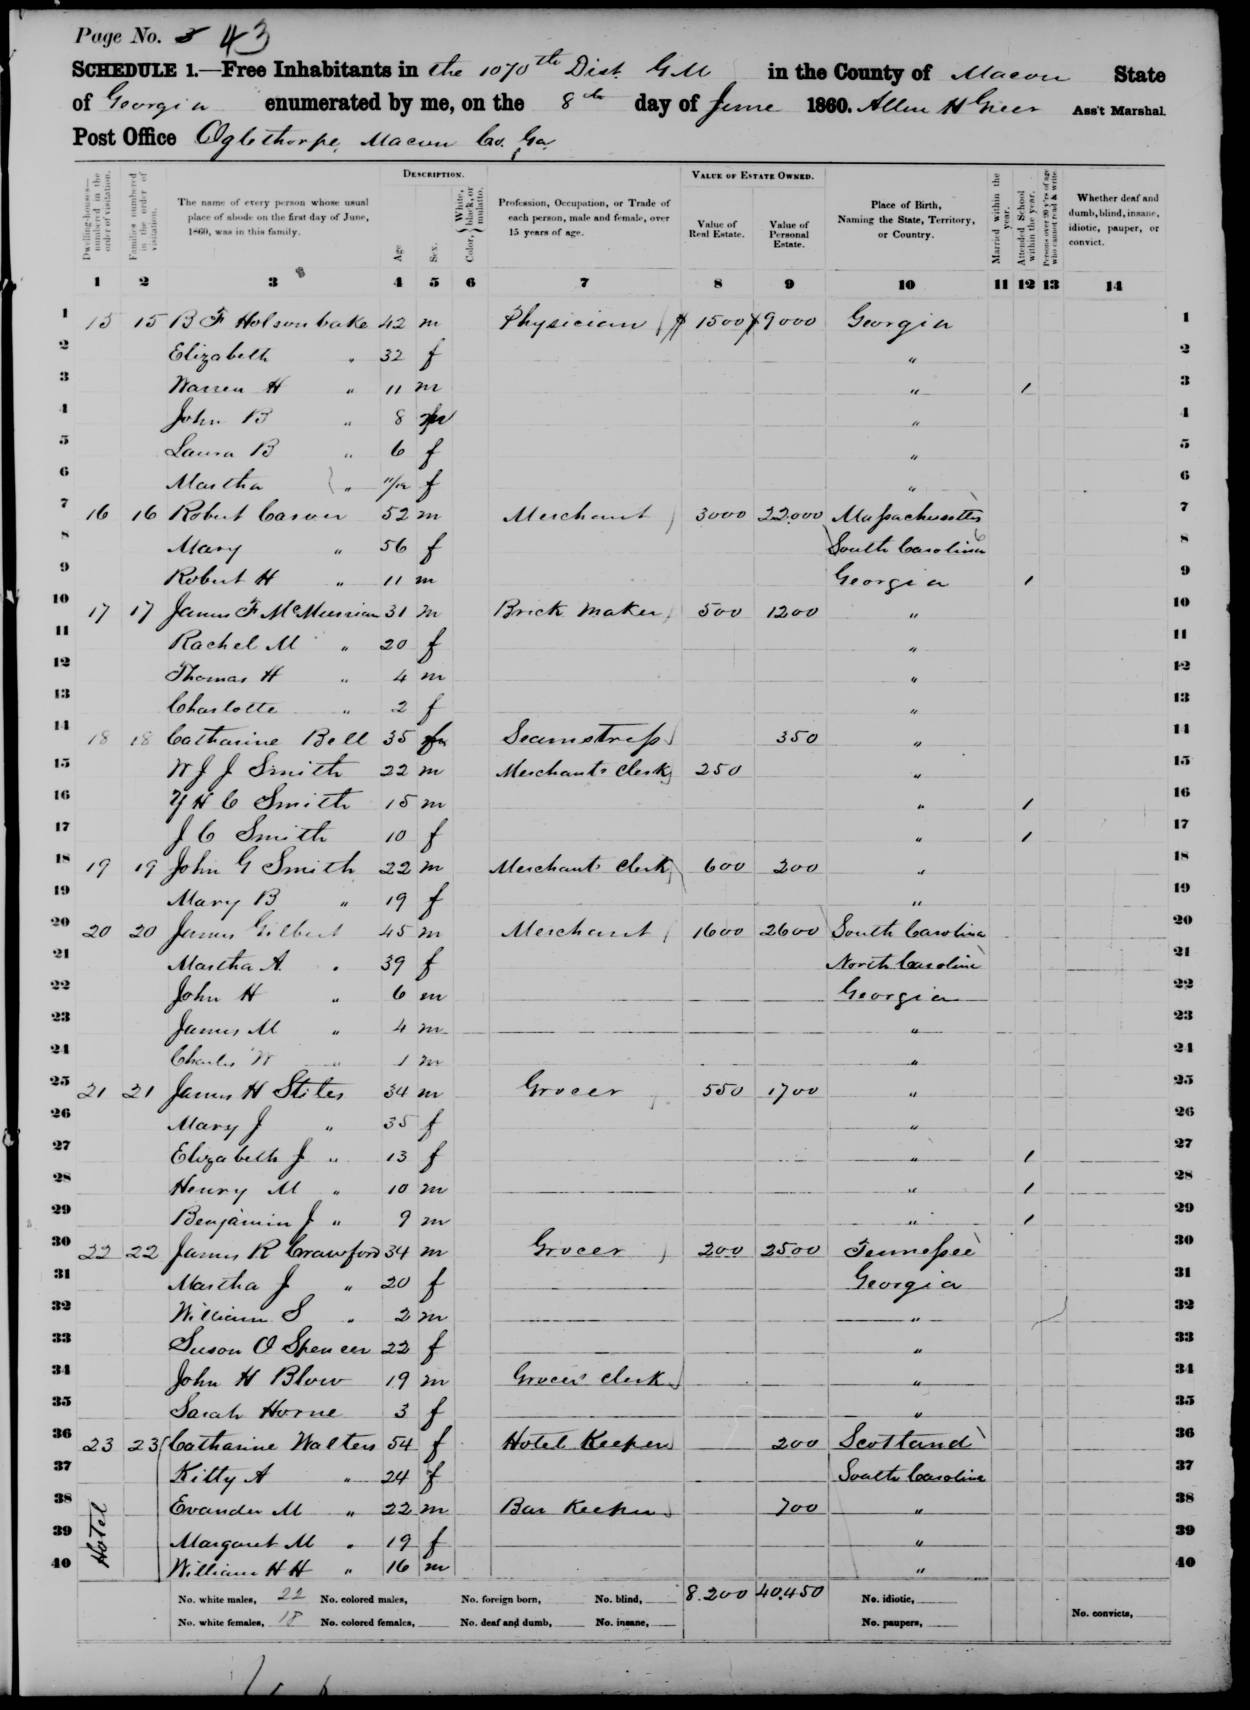 Page No. 3 43
SCHEDULE 1.—Free Inhabitants in the 1070th Dist. G M in the County of Macon State
of Georgia enumerated by me, on the 8th day of June 1860. Allen H Greer Ass't Marshal.
Post Office Oglethorpe, Macon Co. Ga.
DESCRIPTION. VALUE OF ESTATE OWNED.
Dwelling-houses—numbered in the order of visitation.
Families numbered in the order of visitation.
The name of every person whose usual place of abode on the first day of June, 1860, was in this family.
Age
Sex.
Color, { White, black, or mulatto.
Profession, Occupation, or Trade of each person, male and female, over 15 years of age.
Value of Real Estate.
Value of Personal Estate.
Place of Birth, Naming the State, Territory, or Country.
Married within the year.
Attended School within the year.
Persons over 20 y'rs of age who cannot read & write.
Whether deaf and dumb, blind, insane, idiotic, pauper, or convict.
1 2 3 4 5 6 7 8 9 10 11 12 13 14
1 15 15 B F Holsonbake 42 m Physician $ 1500 $ 9000 Georgia 1
2 Elizabeth " 32 f " 2
3 Warren H " 11 m " / 3
4 John B " 8 m " 4
5 Laura B " 6 f " 5
6 Martha " 11/12 f " 6
7 16 16 Robert Carver 52 m Merchant 3000 22.000 Massachusetts 7
8 Mary " 56 f South Carolina 8
9 Robert H " 11 m Georgia / 9
10 17 17 James F McMurrian 31 m Brick Maker 500 1200 " 10
11 Rachel M " 20 f " 11
12 Thomas H " 4 m " 12
13 Charlotte " 2 f " 13
14 18 18 Catharine Bell 35 f Seamstress 350 " 14
15 W J J Smith 22 m Merchants Clerk 250 " 15
16 H C Smith 15 m " / 16
17 J C Smith 10 f " / 17
18 19 19 John G Smith 22 m Merchants Clerk 600 200 " 18
19 Mary B " 19 f " 19
20 20 20 James Gilbert 45 m Merchant 1600 2600 South Carolina 20
21 Martha A. " 39 f North Carolina 21
22 John H " 6 m Georgia 22
23 James M " 4 m " 23
24 Charles W " 1 m " 24
25 21 21 James H Stiles 34 m Grocer 550 1700 " 25
26 Mary J " 35 f " 26
27 Elizabeth J " 13 f " / 27
28 Henry M " 10 m " / 28
29 Benjamin J " 9 m " / 29
30 22 22 James R Crawford 34 m Grocer 200 2500 Tennessee 30
31 Martha J " 20 f Georgia 31
32 William S " 2 m " 32
33 Suson O Spencer 22 f " 33
34 John H Blow 19 m Grocers Clerk " 34
35 Sarah Horne 3 f " 35
36 23 23 Catharine Walters 54 f Hotel Keeper 200 Scotland 36
37 Kitty A " 24 f South Carolina 37
38 Evander M " 22 m Bar Keeper 700 " 38
39 Margaret M " 19 f " 39
40 William H H " 16 m " 40
Hotel
No. white males, 22 No. colored males, No. foreign born, No. blind, 8.200 40.450 No. idiotic,
No. white females, 18 No. colored females, No. deaf and dumb, No. insane, No. paupers, No. convicts,